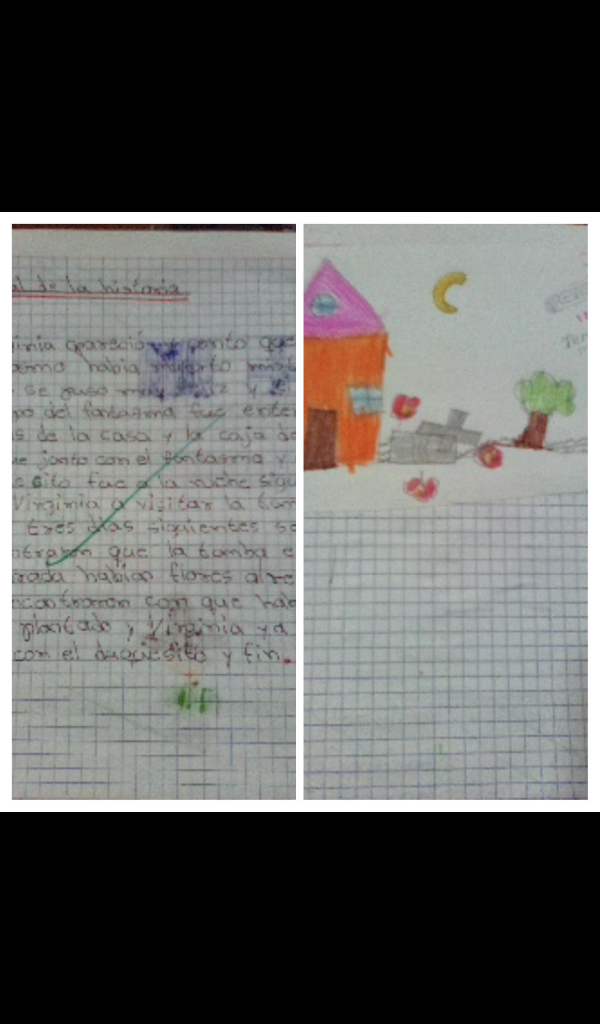 l de la historia
inia apareció contó que
asmo habia muerto mist
se puso muy y
po del fantasma fue enter
s de la casa y la caja de
e junto con el fantasma y
sito fue a la noche sigu
Virginia a visitar la tum
tres dias siguientes se
ntraron que la tomba e
rada habian flores alre
ncontraron con que hab
plantado y Virginia ya
con el duquesito y fin.